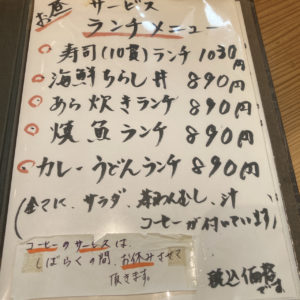 お昼 サービス
ランチメニュー
寿司(10貫)ランチ 1030円
海鮮ちらし丼 890円
あら炊きランチ 890円
焼魚ランチ 890円
カレーうどんランチ 890円
(全てに、サラダ、茶わんむし、汁
コーヒーが付いています)
コーヒーのサービスは、
しばらくの間、お休みさせて
頂きます。
税込価格です。